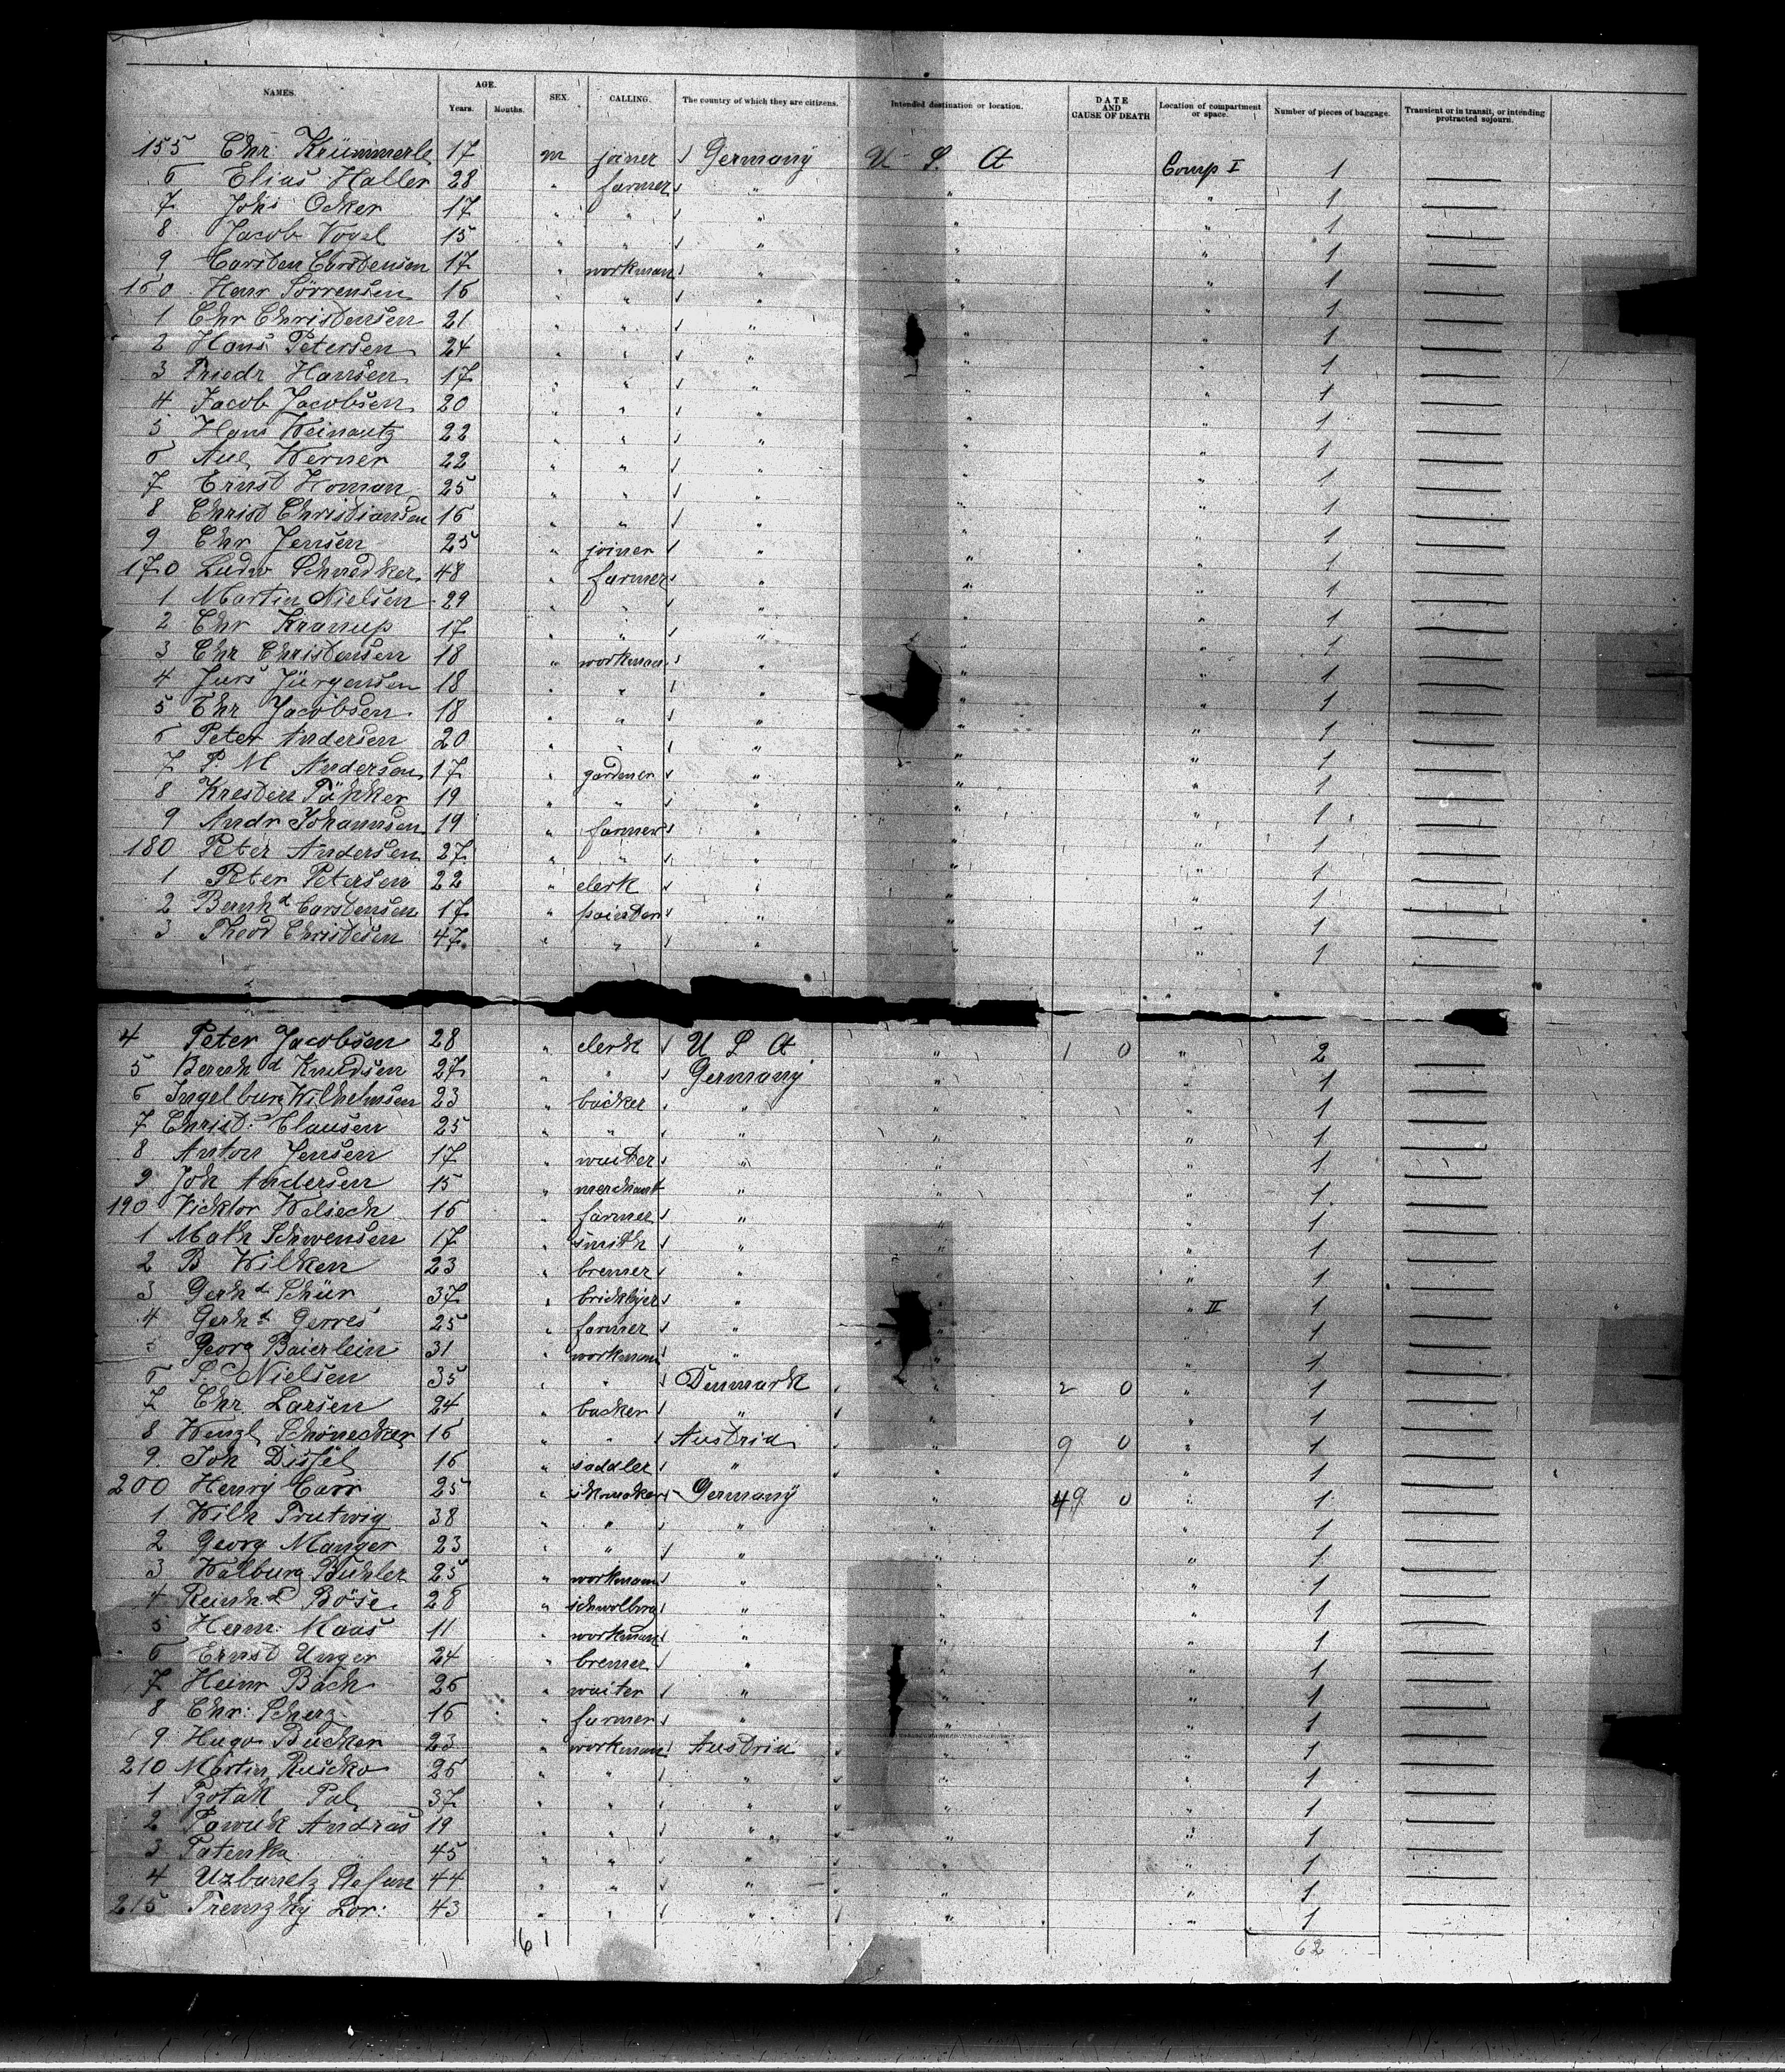 NAMES. AGE. Years. Months. SEX. CALLING. The country of which they are citizens. Intended destination or location. DATE AND CAUSE OF DEATH Location of compartment or space. Number of pieces of baggage. Transient or in transit, or intending protracted sojourn.
155 Chr. Krümmerle 17 m joiner Germany U S A Comp I 1
6 Elias Haller 28 " farmer " " " 1
7 Johs Ocker 17 " " " " " 1
8 Jacob Vogel 15 " " " " " 1
9 Carsten Carstensen 17 " workman " " " 1
160 Hans Sörrensen 16 " " " " " 1
1 Chr Christensen 21 " " " " " 1
2 Hans Petersen 24 " " " " " 1
3 Friedr Hansen 17 " " " " " 1
4 Jacob Jacobsen 20 " " " " " 1
5 Hans 22 " " " " " 1
6 Aug Werner 22 " " " " " 1
7 Ernst Homan 25 " " " " " 1
8 Christ Christiansen 16 " " " " " 1
9 Chr Jensen 25 " joiner " " " 1
170 Ludw 48 " farmer " " " 1
1 Martin Nielsen 29 " " " " " 1
2 Chr Krarup 17 " " " " " 1
3 Chr Christensen 18 " workman " " " 1
4 Jürgensen 18 " " " " " 1
5 Chr Jacobsen 18 " " " " " 1
6 Peter Andersen 20 " " " " " 1
7 P. M Andersen 17 " gardener " " " 1
8 Kresten 19 " " " " " 1
9 Andr Johannsen 19 " farmer " " " 1
180 Peter Andersen 27 " " " " " 1
1 Peter Petersen 22 " clerk " " " 1
2 Bernhd Carstensen 17 " painter " " " 1
3 Theod Christesen 47 " " " " " 1
4 Peter Jacobsen 28 " clerk U S A " 1 0 " 2
5 Bernhd Knudsen 27 " " Germany " " 1
6 Ingelburg Wilhelmsen 23 " backer " " " 1
7 Christ. Clausen 25 " " " " " 1
8 Anton Jensen 17 " waiter " " " 1
9 Joh Andersen 15 " merchant " " " 1
190 Vicktor 16 " farmer " " " 1
1 Math Schwensen 17 " smith " " " 1
2 B Wilken 23 " bremer " " " 1
3 Gerhd Schür 37 " " " " II 1
4 Gerhd Gerres 25 " farmer " " " 1
5 Georg Baierlein 31 " workman " " " 1
6 S. Nielsen 35 " " Denmark " 2 0 " 1
7 Chr Larsen 24 " backer " " " 1
8 Wenzl Schönecker 16 " " Austria " 9 0 " 1
9 Joh 16 " saddler " " " 1
200 Henry Carr 25 " Germany " 49 0 " 1
1 Wilh Trutwig 38 " " " " " 1
2 Georg Manger 23 " " " " " 1
3 Walburg Buhler 25 " workman " " " 1
4 Reinhd Böse 28 " " " " 1
5 Herm. Maas 11 " workman " " " 1
6 Ernst Unger 24 " bremer " " " 1
7 Heinr Bach 26 " waiter " " " 1
8 Chr. Scherz 16 " farmer " " " 1
9 Hugo Bucher 23 " workman Austria " " 1
210 Martin Ruscko 26 " " " " " 1
1 Pal 37 " " " " " 1
2 Andras 19 " " " " " 1
3 Patenka 45 " " " " " 1
4 44 " " " " " 1
215 Lor. 43 " " " " " 1
61 62